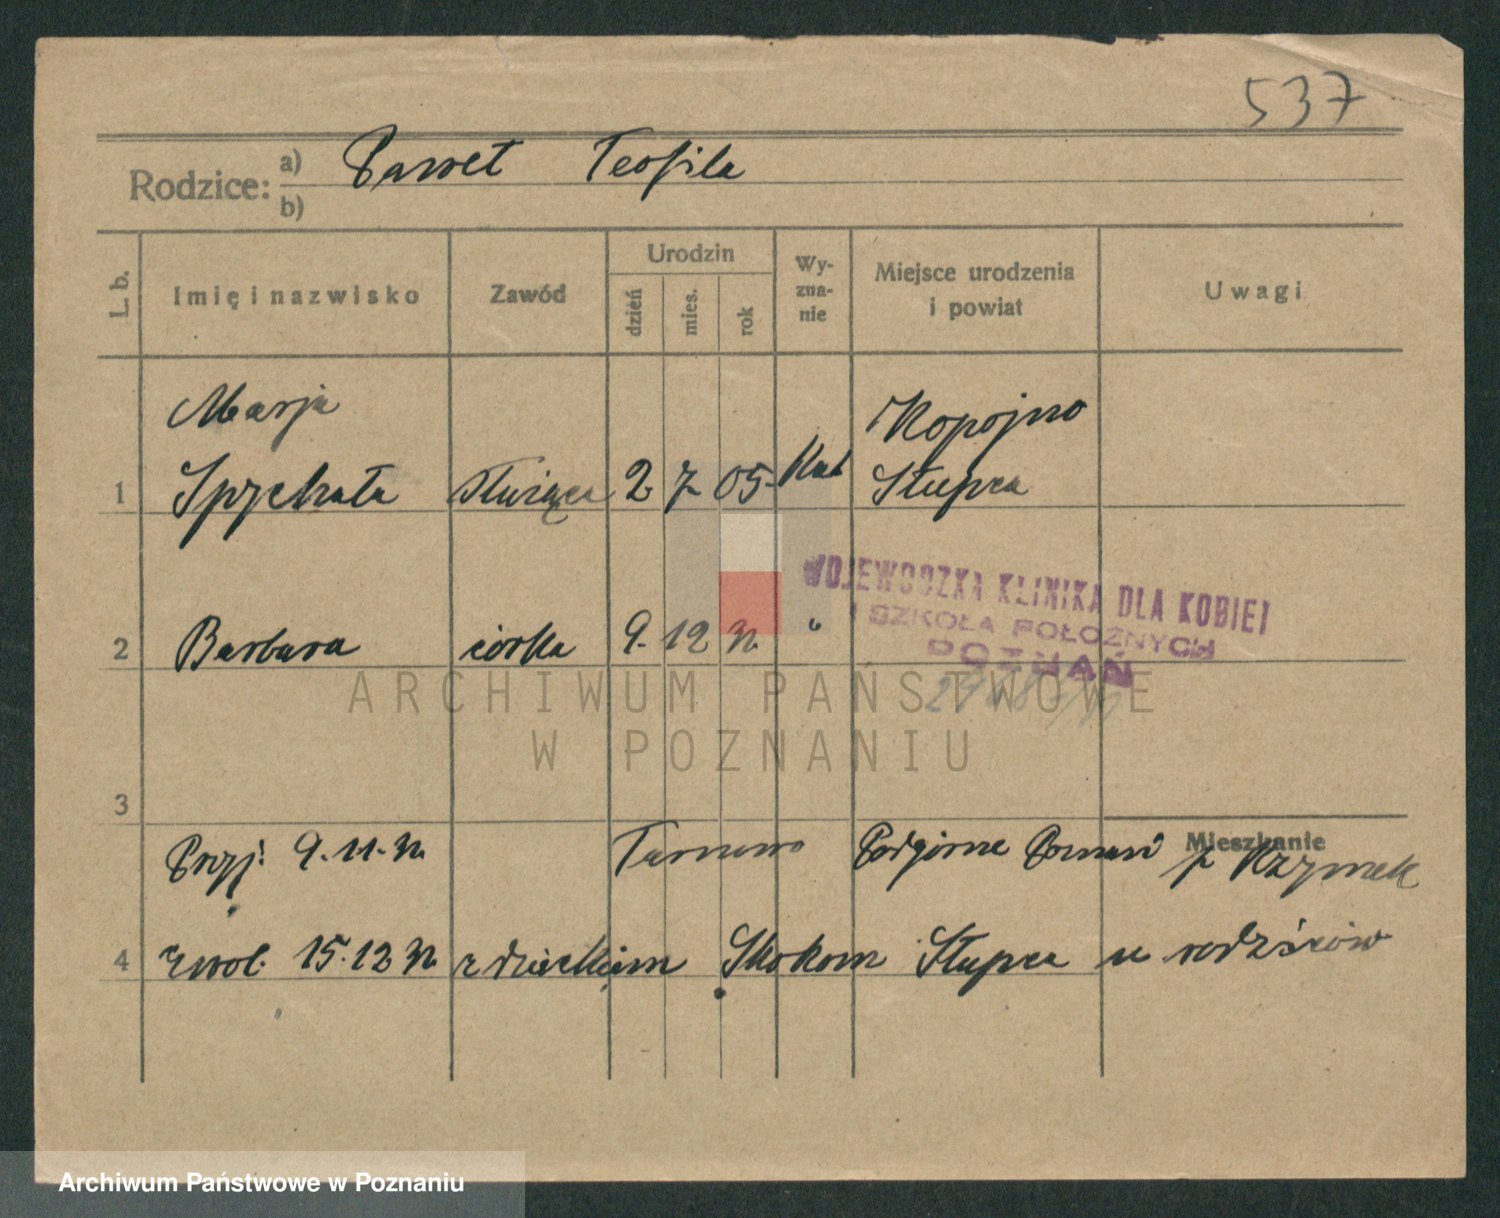 537
Rodzice: a) Paweł Teofila
b)
L. b.
Imię i nazwisko
Zawód
Urodzin
dzień
mies.
rok
Wy-
zna-
nie
Miejsce urodzenia
i powiat
Uwagi
Marja
Kopojno
1 Spychała służąca 2 7 05. Kat Słupca
WOJEWÓDZKA KLINIKA DLA KOBIET
I SZKOŁA POŁOŻNYCH
POZNAŃ
2 Barbara córka 9. 12 32. "
ARCHIWUM PAŃSTWOWE
W POZNANIU
3
Mieszkanie
Przyj: 9.11.32. Tarnowo Podgórne Poznań
4 zwol. 15.12 32 z dzieckiem Skokom Słupca u rodziców
Archiwum Państwowe w Poznaniu